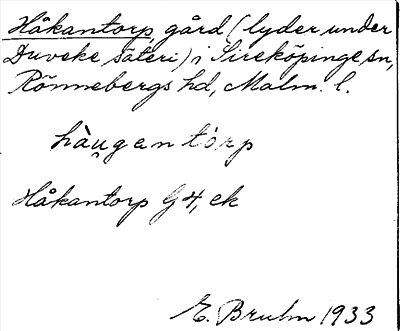 Håkantorp, gård (lyder under
Duveke säteri) i Sireköpinge sn,
Rönnebergs hd, Malm. l.
hàu̯gantó̀rp
Håkantorp G 4, ek
E. Bruhn 1933